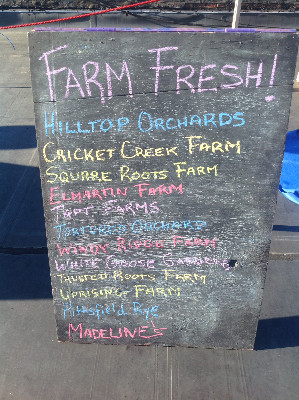 FARM FRESH!
HILLTOP ORCHARDS
CRICKET CREEK FARM
SQUARE ROOTS FARM
ELMARTIN FARM
TAFT FARMS
TORTURED ORCHARD
WINDY RIDGE FARM
WHITE GOOSE GARDENS
TRUSTED ROOTS FARM
UPRISING FARM
Pittsfield Rye
MADELINE'S